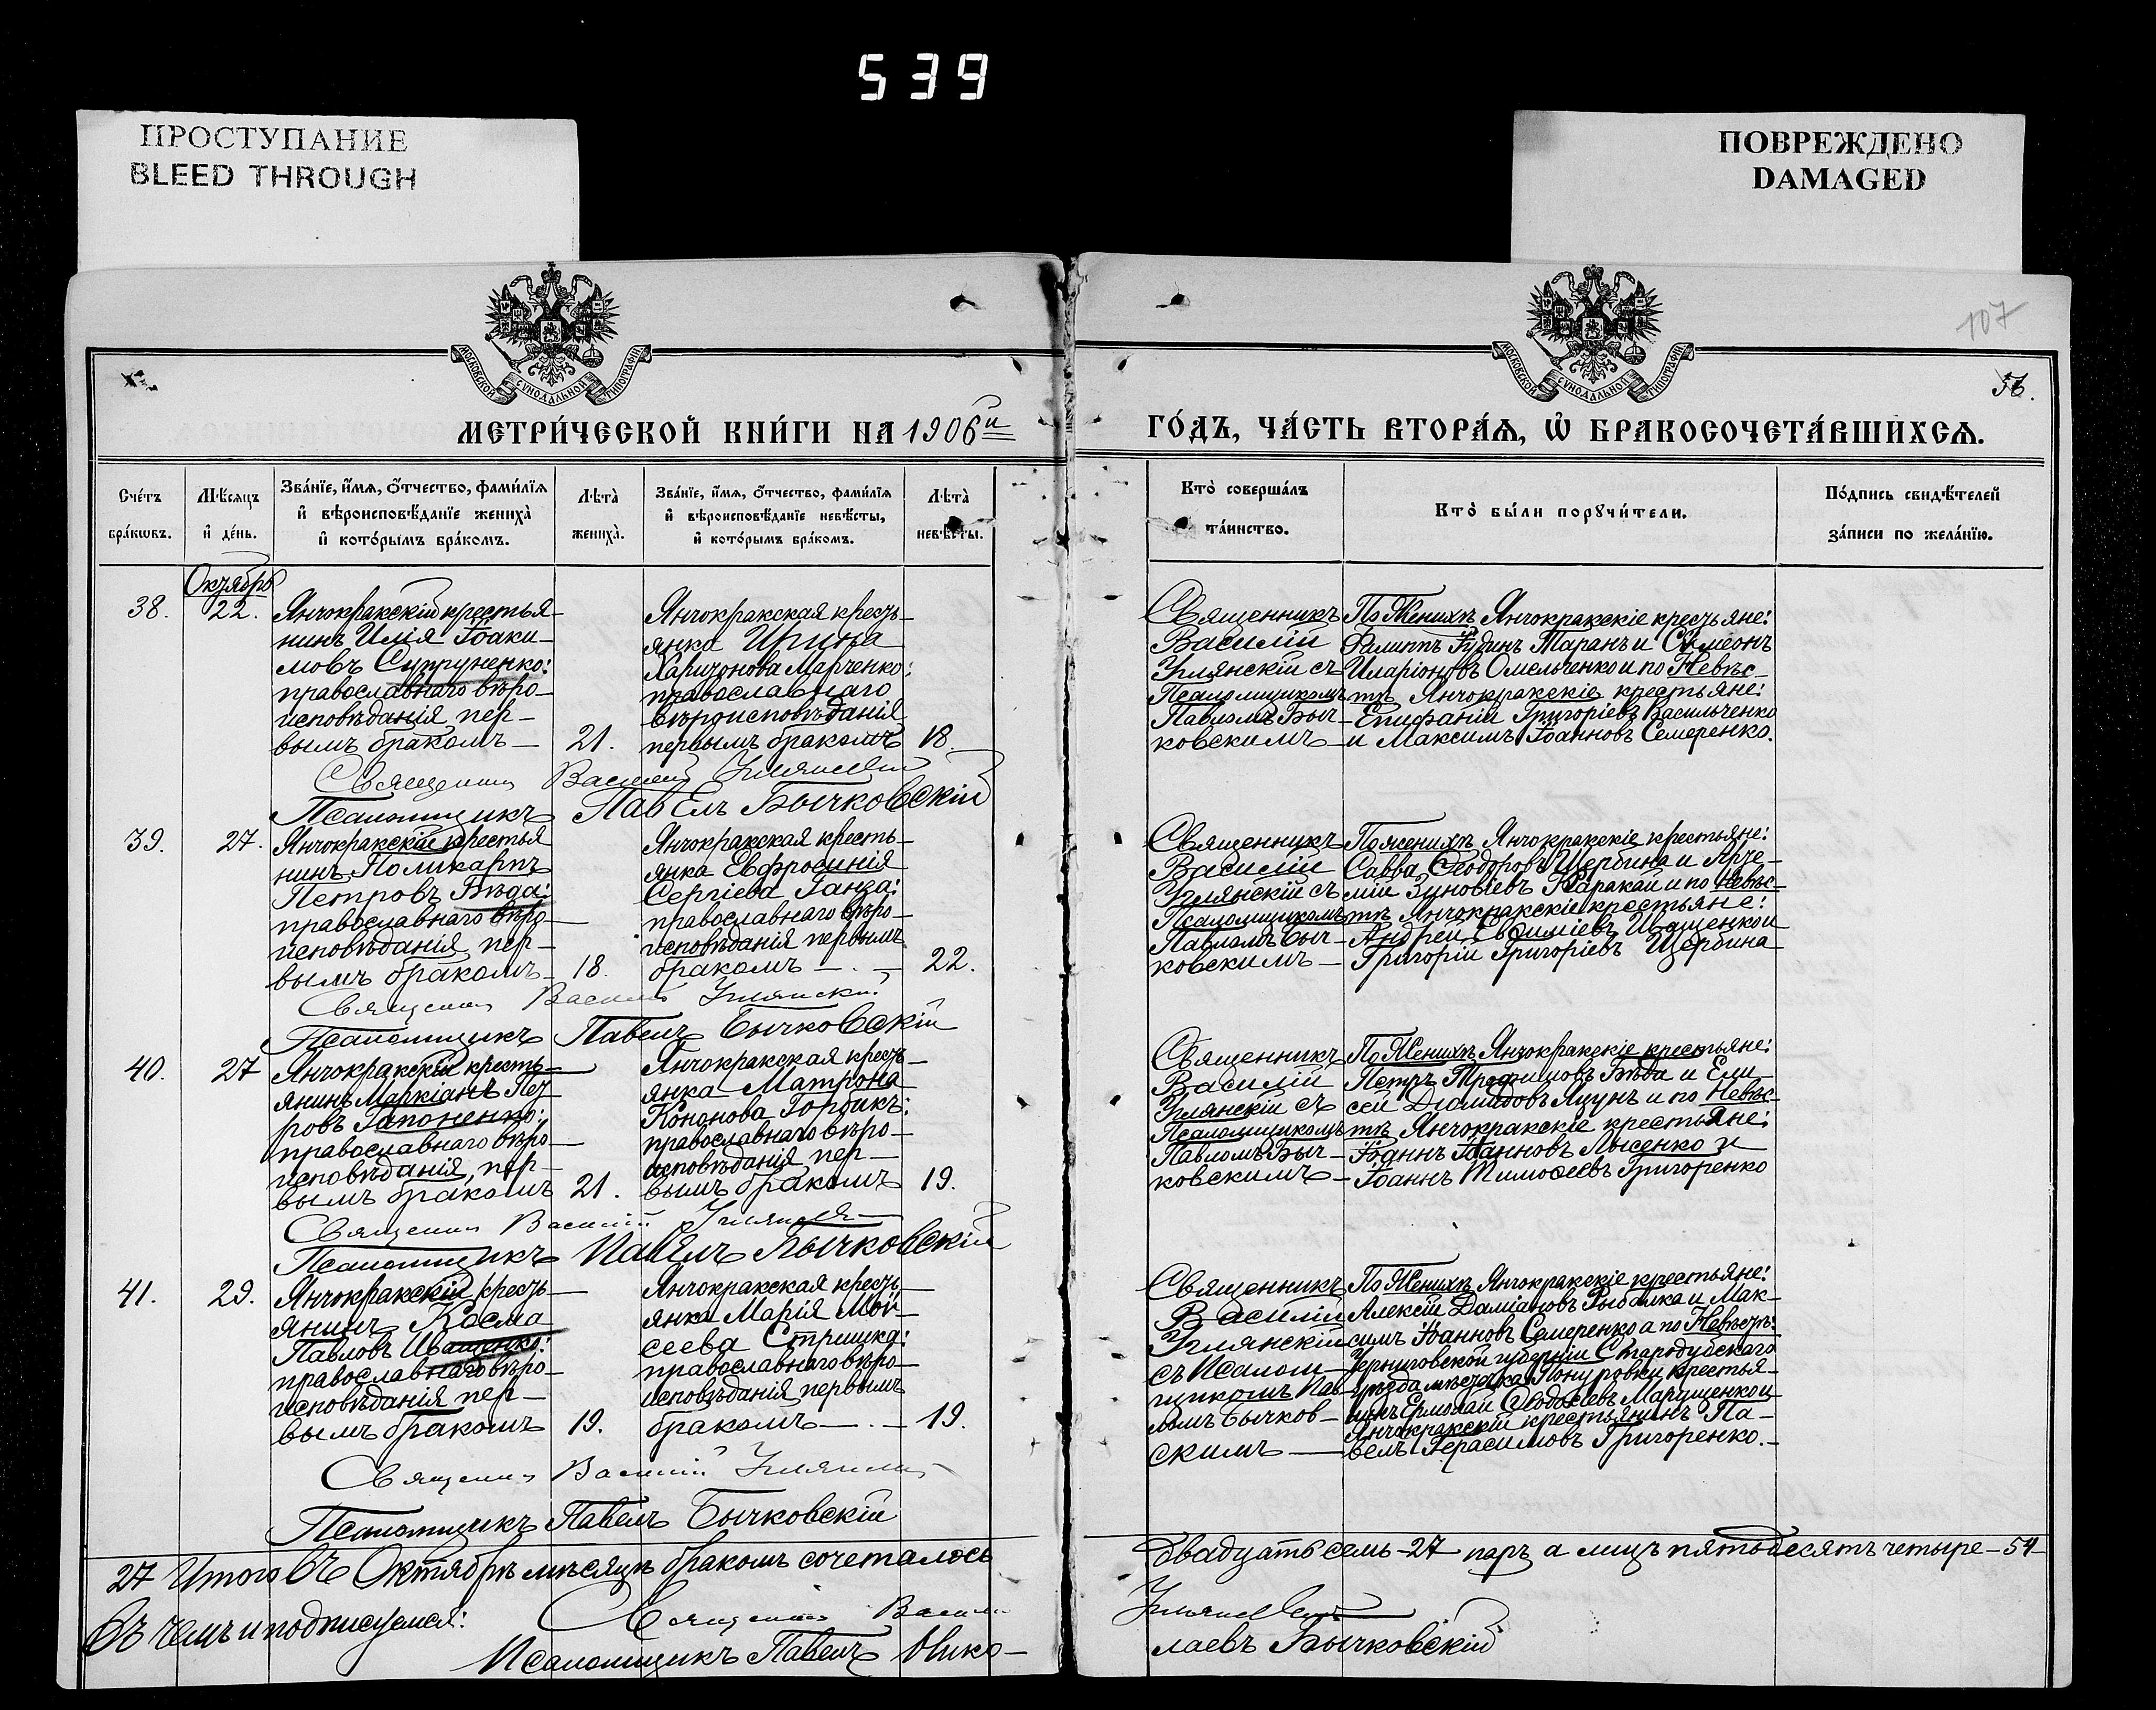 539
ПРОСТУПАНИЕ
BLEED THROUGH
ПОВРЕЖДЕНО
DAMAGED
107
56.
МОСКОВСКОЙ СѴНОДАЛЬНОЙ ТИПОГРАФІИ
МОСКОВСКОЙ СѴНОДАЛЬНОЙ ТИПОГРАФІИ
МЕТРИ́ЧЕСКОЙ КНИ́ГИ НА 1906й
ГО́ДЪ, ЧА́СТЬ ВТОРА́Ѧ, Ѡ҆ БРАКОСОЧЕТА́ВШИХСѦ.
Сче́тъ
бра́кѡвъ.
Мѣ́сяцъ
и҆ де́нь.
Зва́нїе, и҆́мѧ, ѻ҆́тчество, фами́лїѧ
и҆ вѣроисповѣ́данїе жениха̀
и҆ кото́рымъ бра́комъ.
Лѣта̀
жениха̀.
Зва́нїе, и҆́мѧ, ѻ҆́тчество, фами́лїѧ
и҆ вѣроисповѣ́данїе невѣ́сты,
и҆ кото́рымъ бра́комъ.
Лѣта̀
невѣ́сты.
Кто̀ соверша́лъ
та́инство.
Кто̀ бы́ли порꙋчи́тели.
По́дпись свидѣ́телей
за́писи по жела́нїю.
Октябрь
38.
22.
Янчокракскій крестья-
нинъ Илія Іоаки-
мовъ Супруненко:
православнаго вѣро-
исповѣданія, пер-
вымъ бракомъ —
21.
Янчокракская кресть-
янка Ирина
Харитонова Марченко:
православнаго
вѣроисповѣданія
первымъ бракомъ
18.
Священникъ
Василій
Углянскій съ
Псаломщикомъ
Павломъ Быч-
ковскимъ —
По Женихѣ Янчокракскіе крестьяне:
Филиппъ Іудинъ Таранъ и Симеонъ
Иларіоновъ Омельченко и по Невѣс-
тѣ Янчокракскіе крестьяне:
Епифаній Григоріевъ Васильченко
и Максимъ Іоанновъ Семеренко.
Священникъ Василій Углянскій
Псаломщикъ Павелъ Бычковскій
39.
27.
Янчокракскій крестья
нинъ Поликарпъ
Петровъ Бѣда:
православнаго вѣро-
исповѣданія, пер-
вымъ бракомъ —
18.
Янчокракская кресть-
янка Евфросинія
Сергіева Ганза:
православнаго вѣро-
исповѣданія первымъ
бракомъ — . —
22.
Священникъ
Василій
Углянскій съ
Псаломщикомъ
Павломъ Быч-
ковскимъ —
По женихѣ Янчокракскіе крестьяне:
Савва Ѳеодоровъ Щербина и Арте-
мій Зиновіевъ Каракай и по Невѣс-
тѣ Янчокракскіе крестьяне:
Андрей Евѳиміевъ Иващенко и
Григорій Григоріевъ Щербина
Священникъ Василій Углянскій
Псаломщикъ Павелъ Бычковскій
40.
27
Янчокракскій кресть-
янинъ Маркіанъ Пет
ровъ Гапоненко:
православнаго вѣро-
исповѣданія, пер-
вымъ бракомъ
21.
Янчокракская кресть-
янка Матрона
Кононова Горбикъ:
православнаго вѣро-
исповѣданія, пер-
вымъ бракомъ
19.
Священникъ
Василій
Углянскій съ
Псаломщикомъ
Павломъ Быч-
ковскимъ —
По Женихѣ Янчокракскіе крестьяне:
Петръ Трофимовъ Бѣда и Ели-
сей Діомидовъ Яцунъ и по Невѣс-
тѣ Янчокракскіе крестьяне:
Іоаннъ Іоанновъ Лысенко и
Іоаннъ Тимоѳеевъ Григоренко
Священникъ Василій Углянскій
Псаломщикъ Павелъ Бычковскій
41.
29.
Янчокракскій кресть-
янинъ Косма
Павловъ Иващенко:
православнаго вѣро-
исповѣданія пер-
вымъ бракомъ
19.
Янчокракская кресть-
янка Марія Мои-
сеева Стришка:
православнаго вѣро-
исповѣданія первымъ
бракомъ — . —
19.
Священникъ
Василій
Углянскій
съ Псалом-
щикомъ Пав-
ломъ Бычков-
скимъ —
По Женихѣ Янчокракскіе крестьяне:
Алексій Даміановъ Рыбалка и Мак-
симъ Іоанновъ Семеренко а по Невѣстѣ:
Черниговской губерніи Стародубскаго
уѣзда мѣстечка Понуровки крестья-
нинъ Ермолай Ѳеодосіевъ Марущенко и
Янчокракскій крестьянинъ Па-
велъ Герасимовъ Григоренко. —
Священникъ Василій Углянскій
Псаломщикъ Павелъ Бычковскій
27 Итого въ Октябрѣ мѣсяцѣ бракомъ сочеталось
двадцать семь — 27 паръ а лицъ пятьдесятъ четыре — 54 —
Въ чемъ и подписуемся:
Священникъ Василій
Углянскій
Псаломщикъ Павелъ Нико-
лаевъ Бычковскій